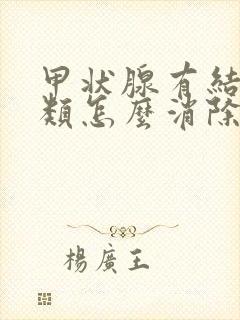 甲状腺有結
類怎麼消除
楊廣王